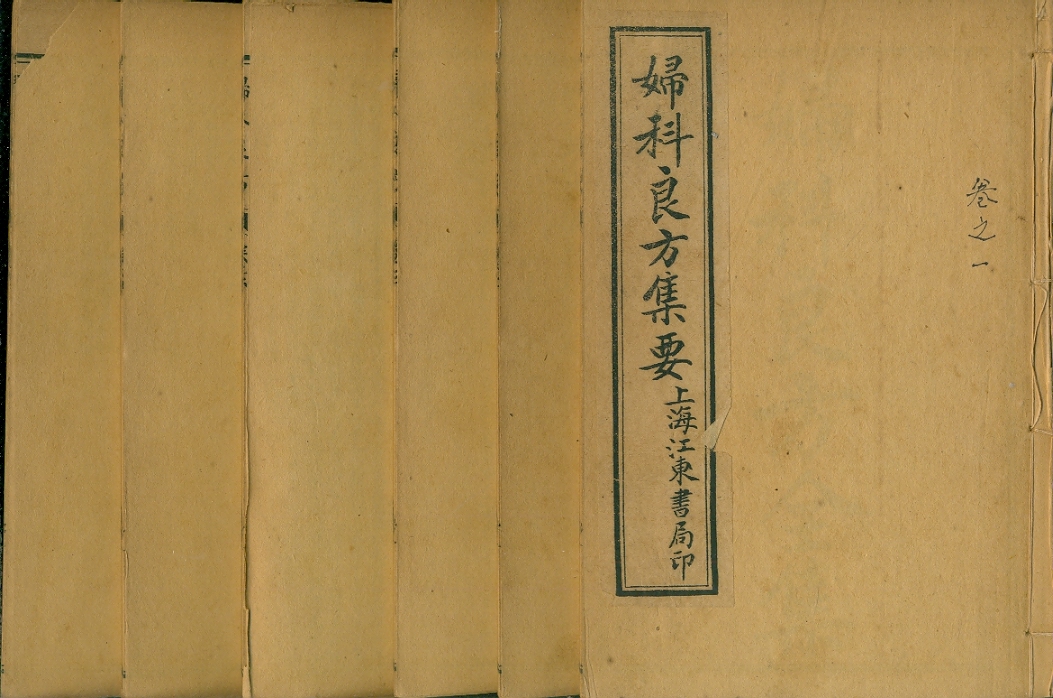 卷之一
婦科良方集要
上海江東書局印